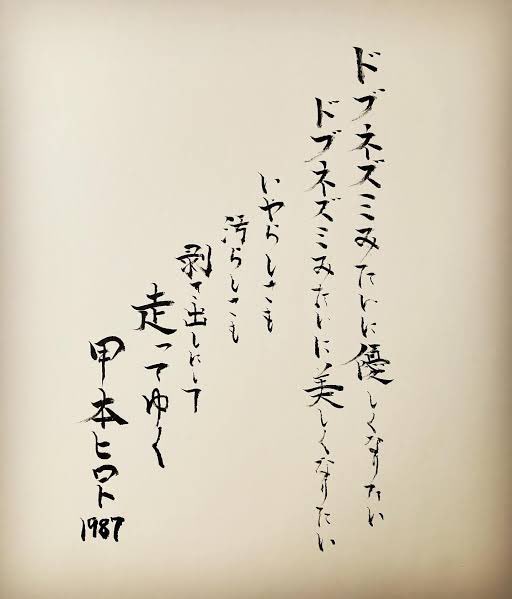 ドブネズミみたいに優しくなりたい
ドブネズミみたいに美しくなりたい
いやらしさも
汚らしさも
剥き出しにして
走ってゆく
甲本ヒロト
1987